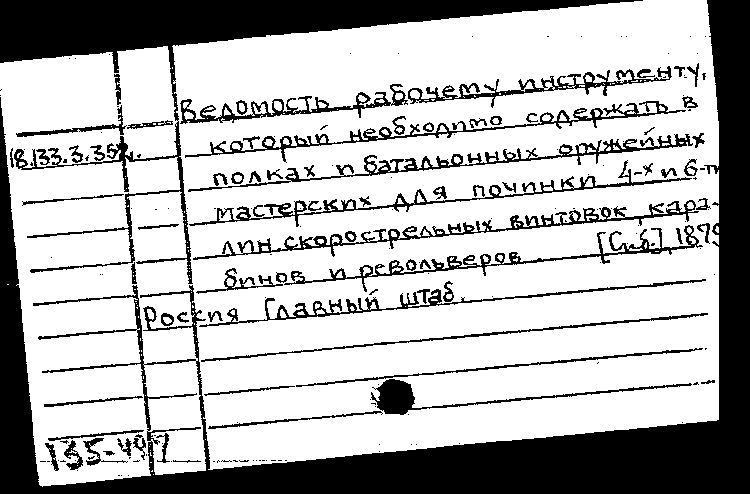 Ведомость рабочему инструменту,
18.133.3.352.
который необходимо содержать в
полках и батальонных оружейных
мастерских для починки 4-х и 6-ти
лин. скорострельных винтовок, кара-
бинов и револьверов. [Спб.], 1879
Россия Главный штаб.
135-497